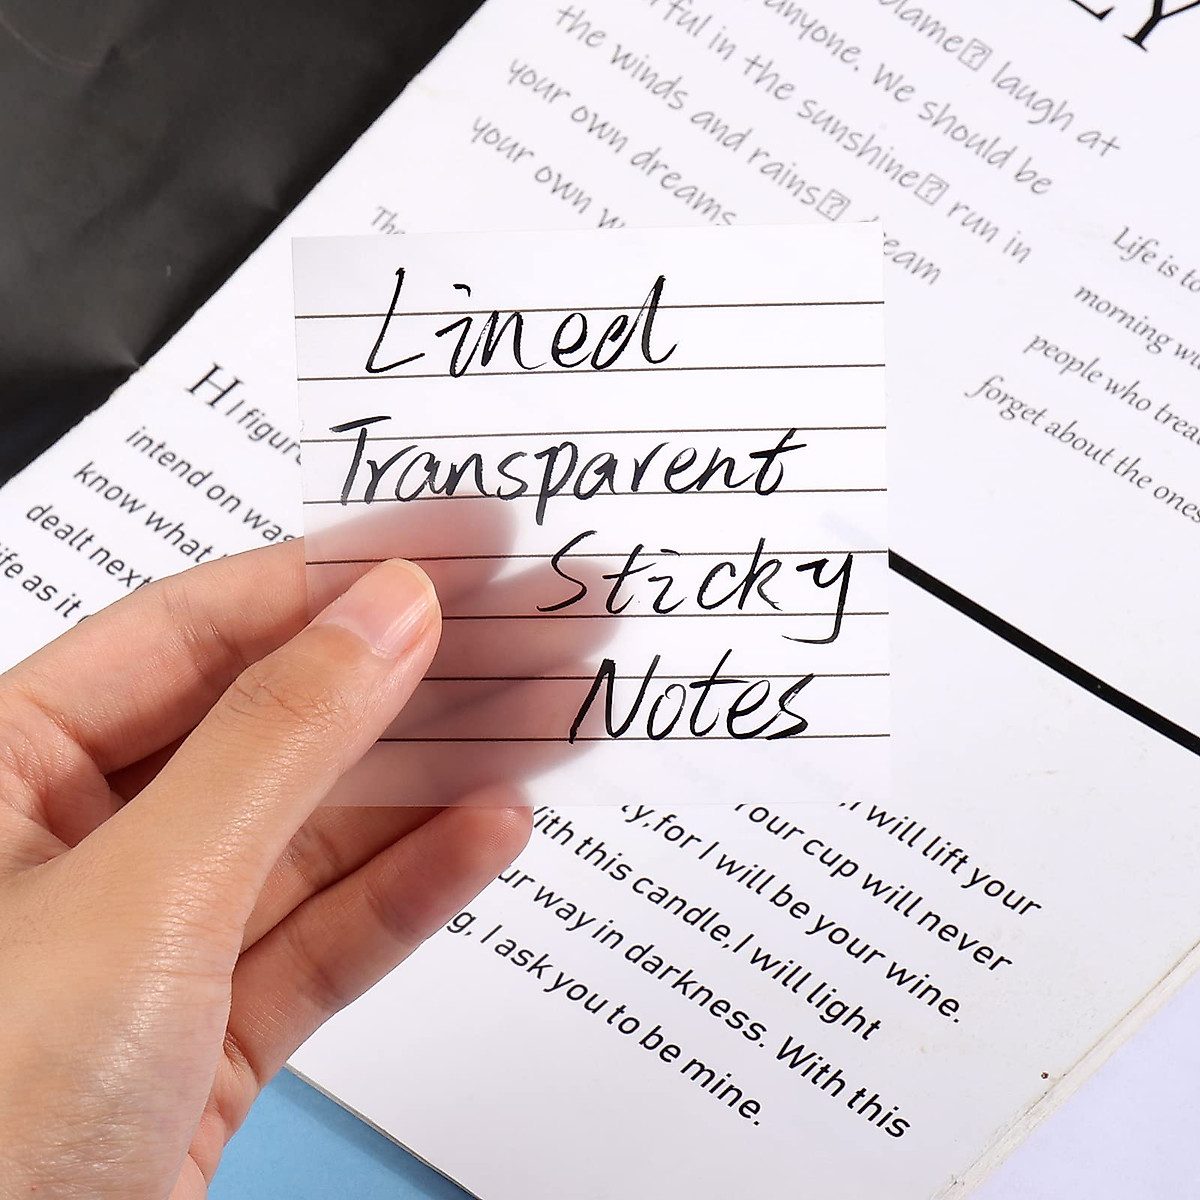 LY
blame⍰ laugh at
anyone. we should be
in the sunshine⍰ run in
the winds and rains⍰
your own dreams
your own
Life is to
morning
people who treat
forget about the ones
The
H I figur
intend on was
know what
dealt next
life as it
Lined
Transparent
Sticky
Notes
I will lift your
Your cup will never
for I will be your wine.
With this candle, I will light
way in darkness. With this
I ask you to be mine.